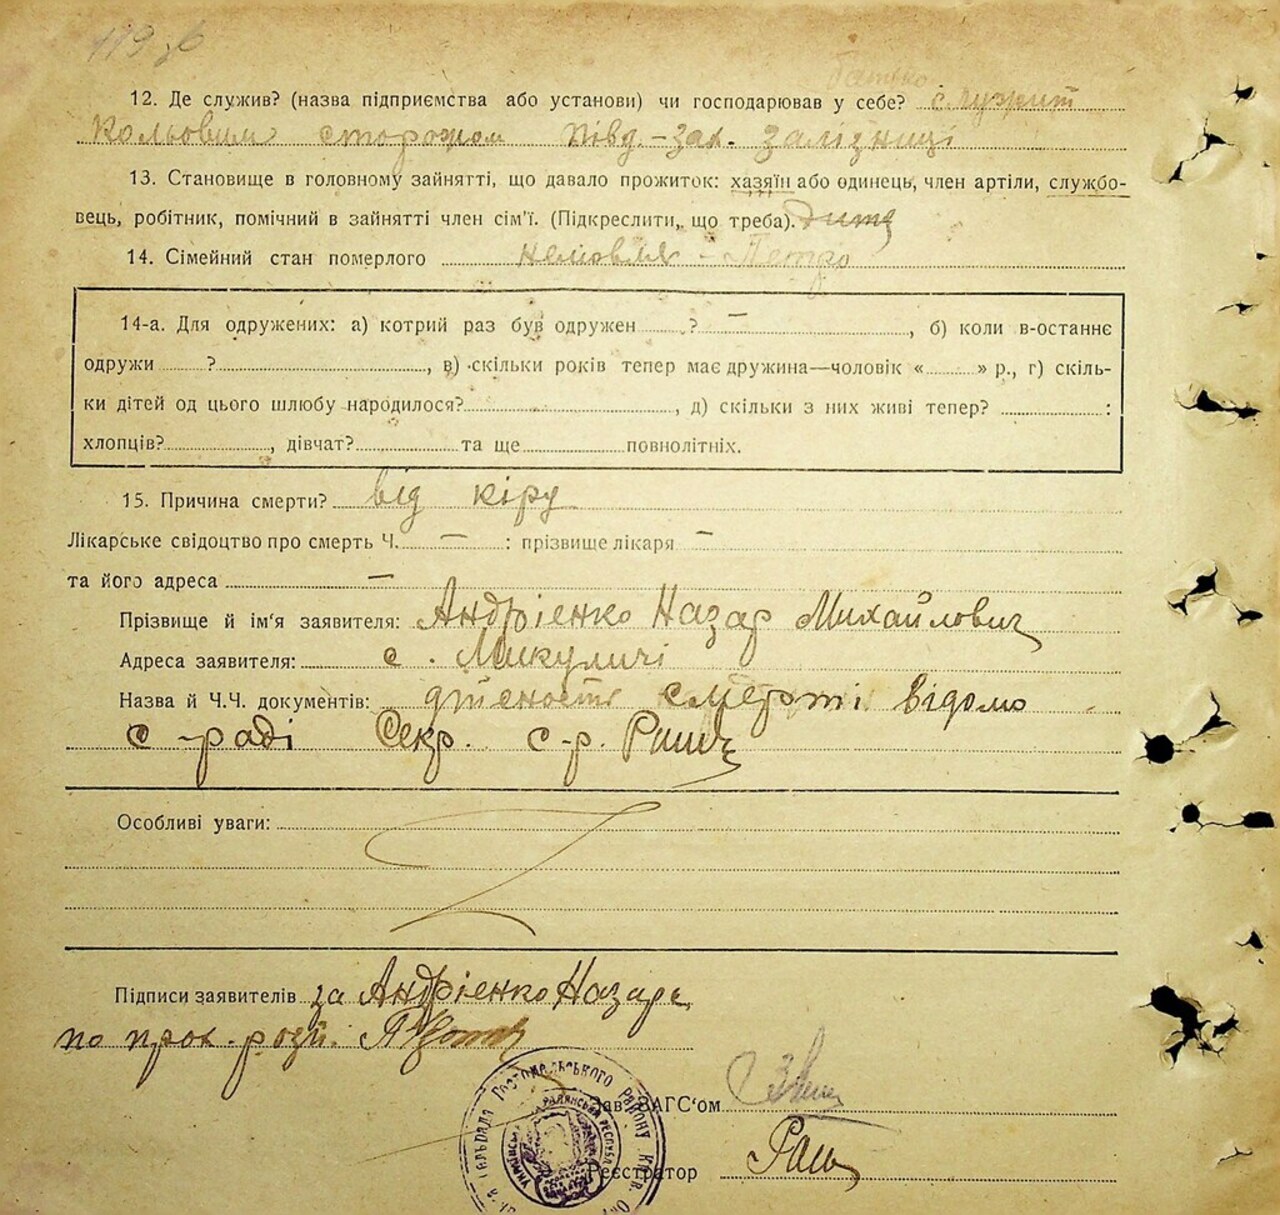 119 зб
батько
12. Де служив? (назва підприємства або установи) чи господарював у себе? служит
Кольовим сторожом Півд.-Зах. Залізниці
13. Становище в головному зайнятті, що давало прожиток: хазяїн або одинець, член артіли, службо-
вець, робітник, помічний в зайнятті член сім'ї. (Підкреслити, що треба). дитя
14. Сімейний стан померлого
14-а. Для одружених: а) котрий раз був одружен ? — , б) коли в-останнє
одружи ? , в) скільки років тепер має дружина—чоловік « » р., г) скіль-
ки дітей од цього шлюбу народилося? , д) скільки з них живі тепер? :
хлопців? , дівчат? та ще повнолітніх.
15. Причина смерти? від кіру
Лікарське свідоцтво про смерть Ч. — : прізвище лікаря —
та його адреса —
Прізвище й ім'я заявителя: Андрієнко Назар Михайлович
Адреса заявителя: с. Микуличі
Назва й Ч.Ч. документів: дійсність смерті відомо
с-раді Секр. с-р.
Особливі уваги:
Підписи заявителів за Андрієнко Назара
по прох. розп.
Гостомельського Району
Зав. ЗАГС'ом
Реєстратор